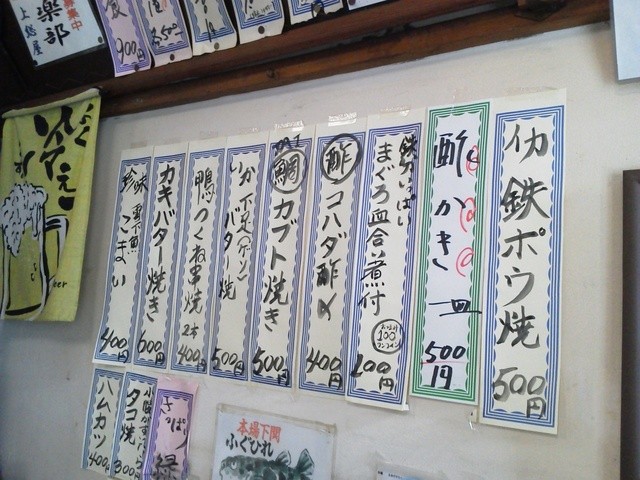 イカ鉄ポウ焼 500円
酢かき 一皿 500円
鉄分いっぱい
まぐろ血合煮付 100円
酢 コハダ酢〆 400円
鯛カブト焼き 500円
いか下足(ゲソ)
バター焼 500円
鴨つくね串焼 2本 400円
カキバター焼き 600円
珍味 こまい 400円
タコ焼 300円
ハムカツ 400円
本場下関
ふぐひれ
募集中
楽部
上総屋
900円